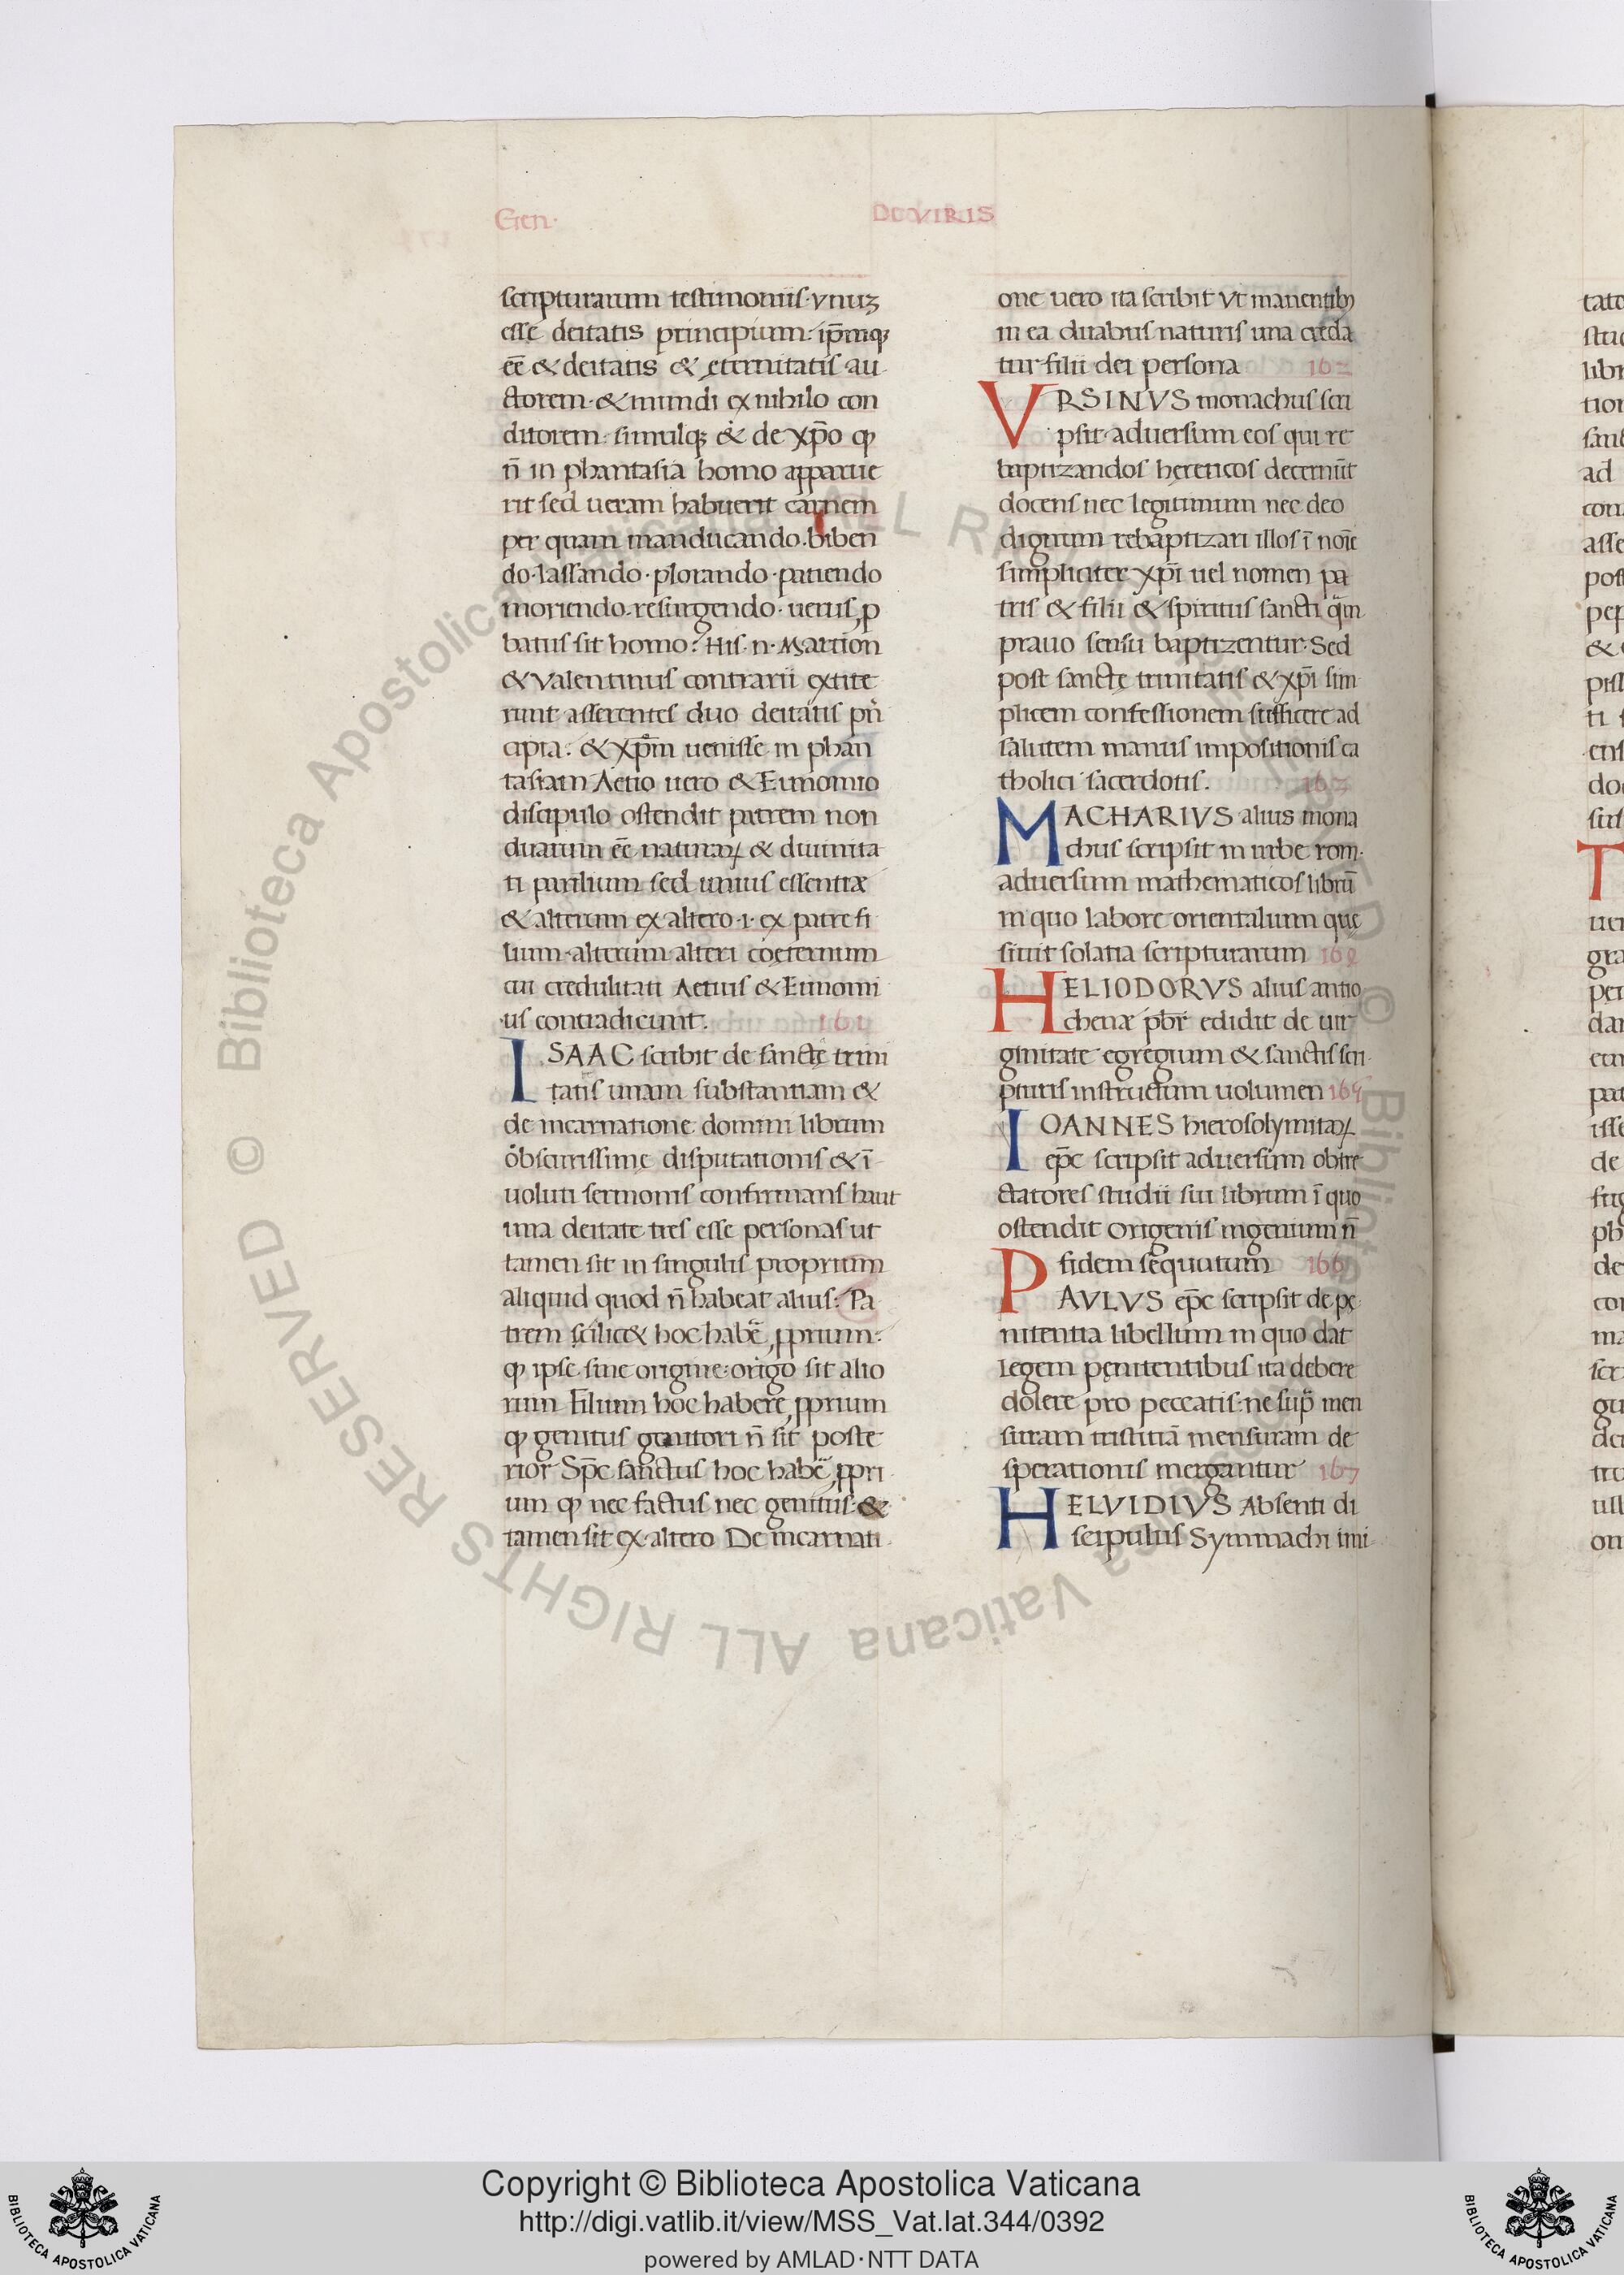 Gen·
DE VIRIS
scripturarum testimoniis· vnuz
esse deitatis principium· ip̄mq;
eē & deitatis & ęternitatis au
ctorem· & mundi ex nihilo con
ditorem: simulq; & de xp̄o ꝙ
n̄ in phantasia homo apparue
rit sed ueram habuerit carnem
per quam manducando· biben
do· lassando· plorando· patiendo
moriendo· resurgendo· uerus ꝓ
batus sit homo? His· n· Martion
& Valentinus contrarii extite
runt asserentes duo deitatis pn̄
cipia: & xp̄m uenisse in phan
tasiam Aetio uero & Eunomio
discipulo ostendit patrem non
duarum eē naturaꝝ & diuinita
ti parilium sed unius essentiæ
& alterum ex altero· i· ex patre fi
lium· alterum alteri coęternum
cui credulitati Aetius & Eunomi
us contradicunt. 161
ISAAC scribit de sanctę trini
tatis unam substantiam &
de incarnatione domini librum
obscurissime disputationis & ī
uoluti sermonis confirmans haut
una deitate tres esse personas ut
tamen sit in singulis proprium
aliquid quod n̄ habeat alius: Pa
trem scilic& hoc habē ꝓprium:
ꝙ ipse sine origine· origo sit alio
rum Filium hoc habere ꝓprium
ꝙ genitus genitori n̄ sit poste
rior Sp̄c sanctus hoc habē ꝓpri
um ꝙ nec factus nec genitus· &
tamen sit ex altero De incarnati
one uero ita scribit Vt manentib;
in ea duabus naturis una creda
tur filii dei persona 162
VRSINVS monachus scri
psit· aduersum eos qui re
baptizandos hereticos decernūt
docens nec legitimum nec deo
dignum rebaptizari illos ī noīe
simpliciter xp̄i uel nomen pa
tris & filii & spiritus sancti q̄m
prauo sensu baptizentur· Sed
post sanctę trinitatis & xp̄i sim
plicem confessionem sufficere ad
salutem manus impositionis ca
tholici sacerdotis. 163
MACHARIVS alius mona
chus scripsit in urbe rom·
aduersum mathematicos librū
in quo labore orientalium quę
siuit solatia scripturarum
HELIODORVS alius antio
chenæ pb̄r edidit de uir
ginitate egregium & sanctis scri
pturis instructum uolumen
IOANNES hierosolymitaꝝ
ep̄c scripsit aduersum obtre
ctatores studii sui librum ī quo
ostendit Origenis ingenium n̄
fidem sequutum 166
PAVLVS ep̄c scripsit de pę
nitentia libellum in quo dat
legem pęnitentibus ita debere
dolere pro peccatis: ne sup̄ men
suram tristitiā mensuram de
sperationis mergantur 167
HELVIDIVS Absenti di
scipulus Symmachi imi
Copyright © Biblioteca Apostolica Vaticana
http://digi.vatlib.it/view/MSS_Vat.lat.344/0392
powered by AMLAD·NTT DATA